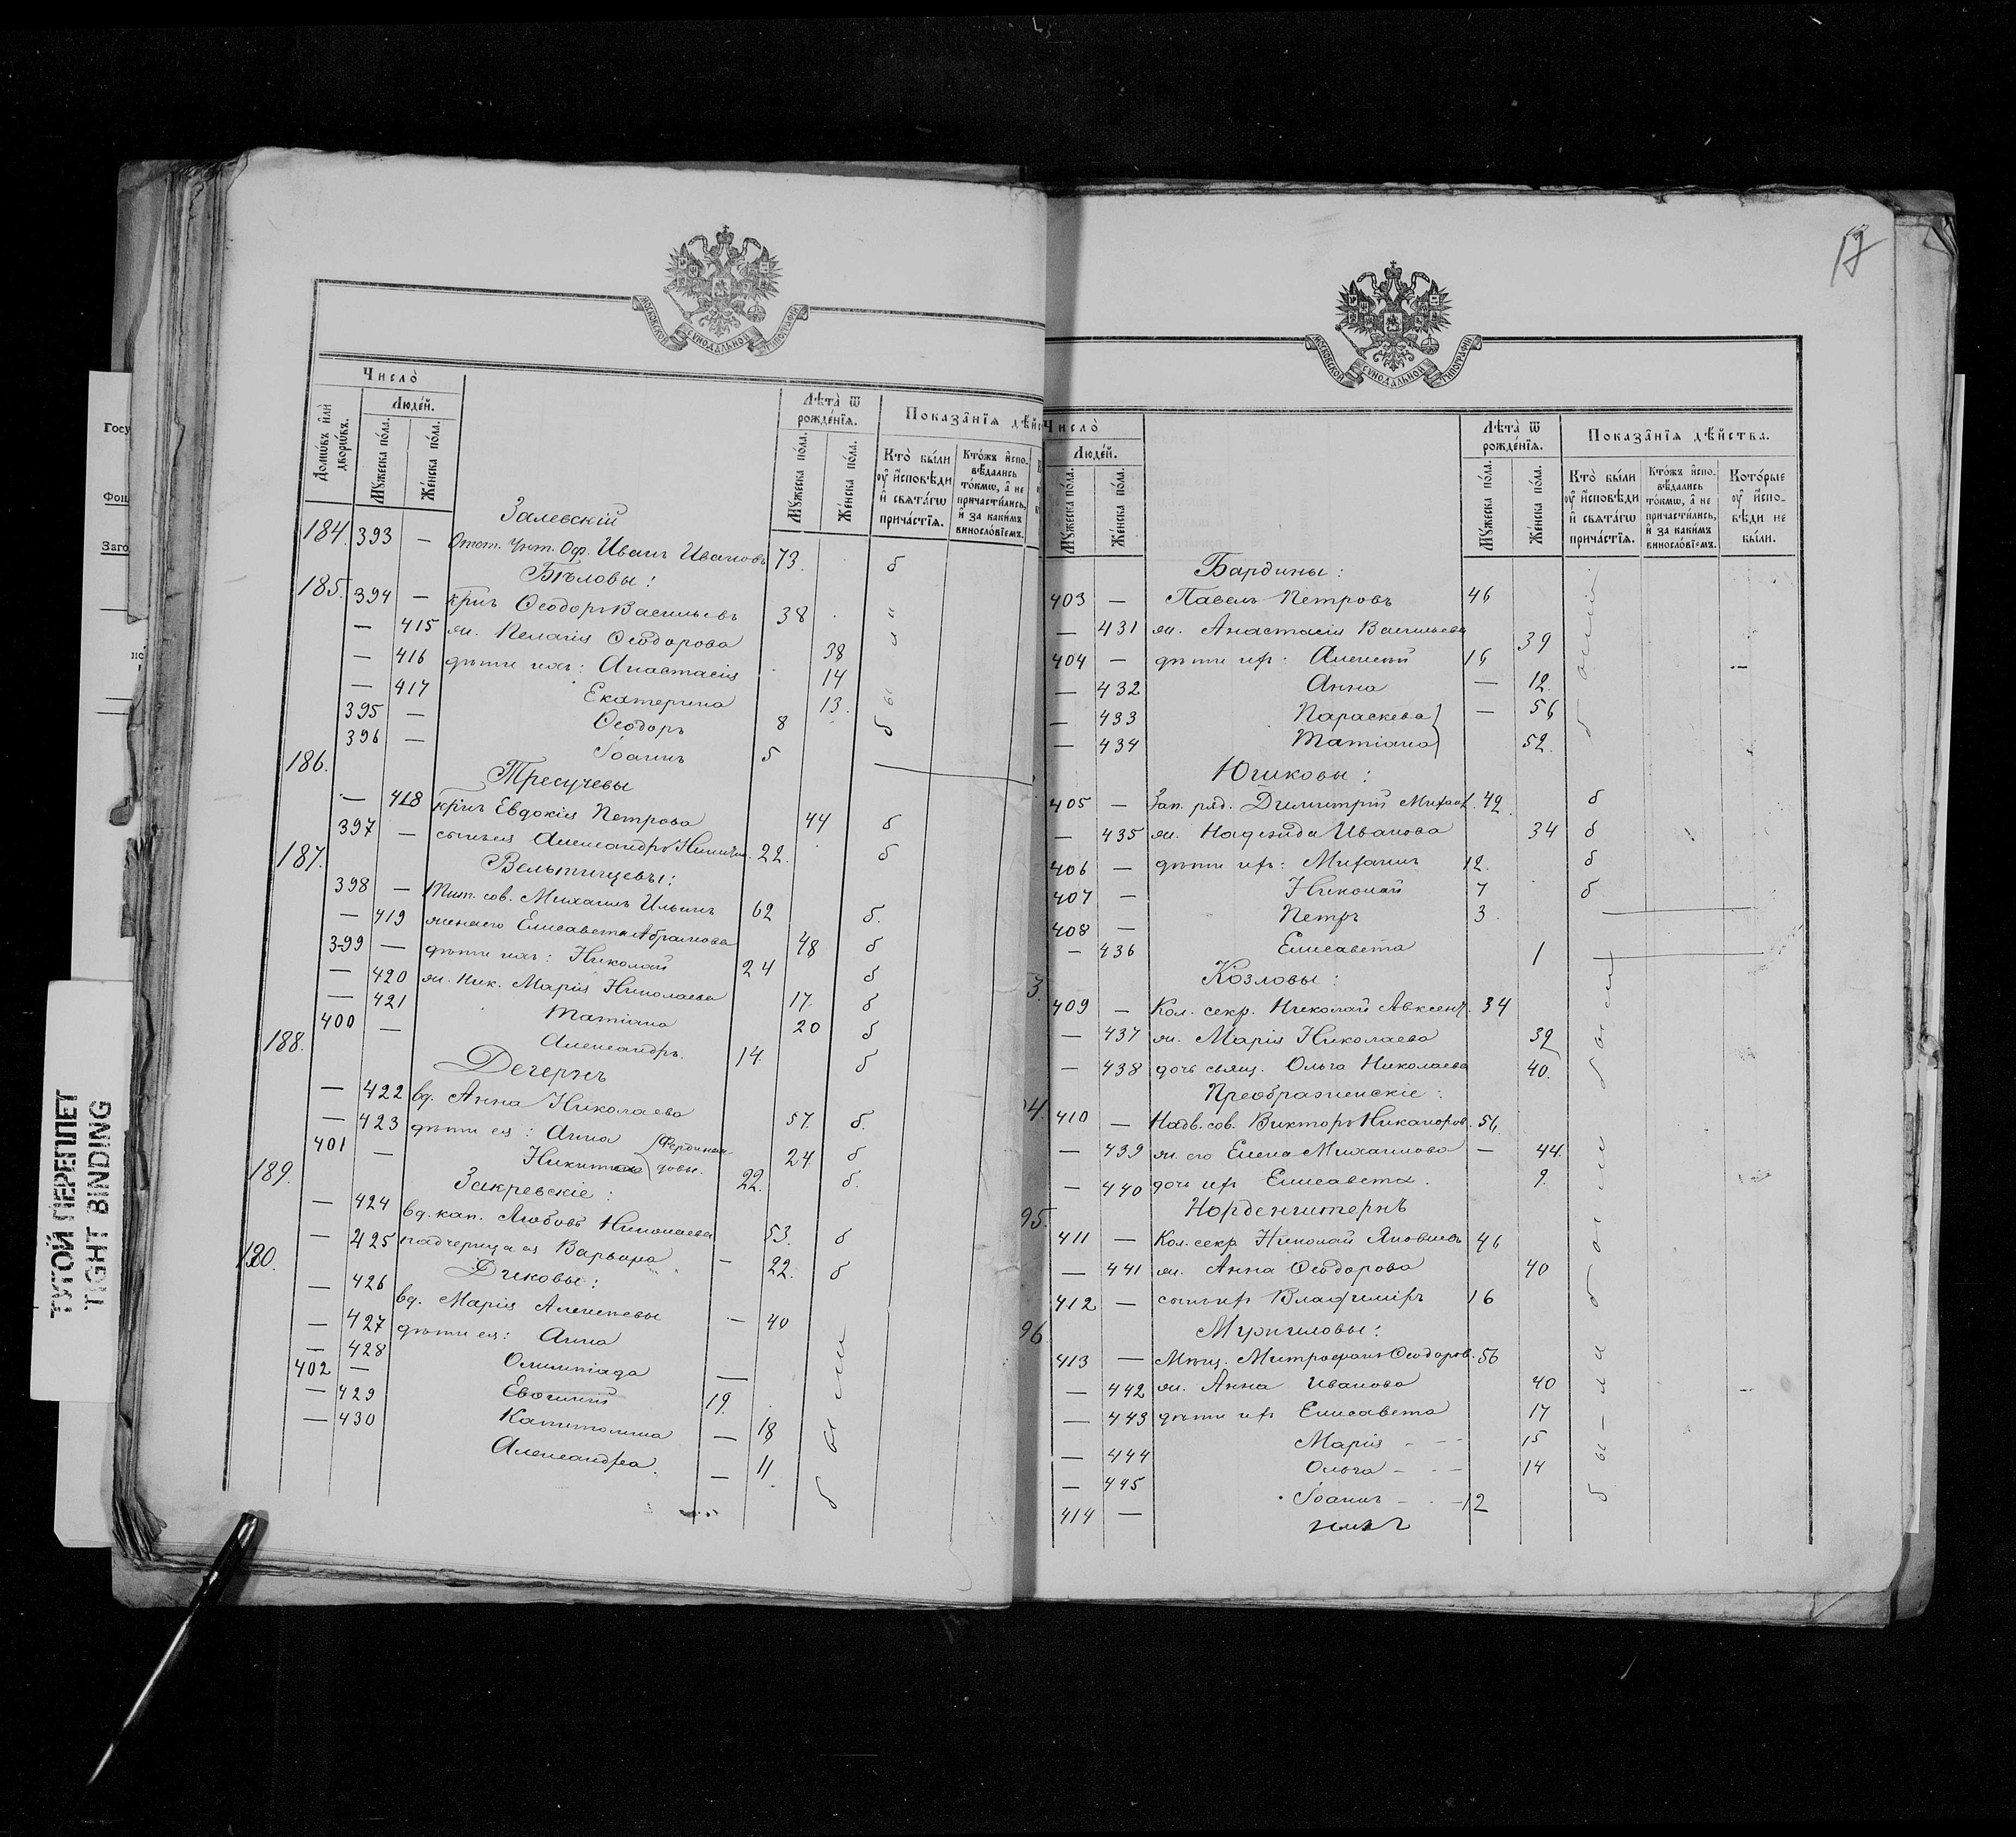 17
МОСКОВСКОЙ СѴНОДАЛЬНОЙ ТИПОГРАФІИ
Число̀
Домѡ́въ и҆лѝ дворѡ́въ.
Люде́й.
Мꙋ́жеска по́ла.
Же́нска по́ла.
Лѣ́та ѿ рожде́нїѧ.
Мꙋ́жеска по́ла.
Же́нска по́ла.
Показа̑нїѧ дѣ́йс
Кто̀ бы́ли ᲂу҆ и҆сповѣди и҆ свѧта́гѡ прича́стїѧ.
Кто́жъ и҆сповѣ́дались то́кмѡ, а҆ не причасти́лись, и҆ за каки́мъ винословїемъ.
Залевскій
184. 393 — Отст. Унт. Оф. Иванъ Ивановъ 73. б
185. Бѣловы:
394 — кр-нъ Ѳеодоръ Васильевъ 38
— 415 ж. Пелагія Ѳеодорова 38
— 416 дѣти ихъ: Анастасія 14
— 417 Екатерина 13.
395 — Ѳеодоръ 8
396 — Іоаннъ 5
186. Тресучевы
— 418 Евдокія Петрова 44 б
397 — сынъ ея Александръ 22. б
187.
398 — Тит. сов. Михаилъ Ильинъ 62 б.
— 419 жена его Елисавета Абрамова 48 б
399 — дѣти ихъ: Николай 24 б
— 420 ж. Ник. Марія Николаева 17. б
— 421 Татіана 20 б
400 — Александръ. 14. б
188.
— 422 вд. Анна Николаева 57. б.
— 423 дѣти ея: Анна 24 б
401 — Никита 22. б.
189. Закревскіе:
— 424 вд. кап. Любовь Николаева 53. б
— 425 падчерица ея Варвара — 22. б
190. Дчковы:
— 426 вд. Марія Алексеевы — 40
— 427 дѣти ея: Анна
— 428 Олимпіада —
402 — Евгеній 19.
— 429 Капитолина — 18
— 430 Александра. — 11.
МОСКОВСКОЙ СѴНОДАЛЬНОЙ ТИПОГРАФІИ
Число̀
Люде́й.
Мꙋ́жеска по́ла.
Же́нска по́ла.
Лѣ́та ѿ рожде́нїѧ.
Мꙋ́жеска по́ла.
Же́нска по́ла.
Показа̑нїѧ дѣ́йства.
Кто̀ бы́ли ᲂу҆ и҆сповѣди и҆ свѧта́гѡ прича́стїѧ.
Кто́жъ и҆сповѣ́дались то́кмѡ, а҆ не причасти́лись, и҆ за каки́мъ винословїемъ.
Кото́рые ᲂу҆ и҆сповѣ́ди не бы́ли.
Бардины:
403 — Павелъ Петровъ 46
— 431 ж. Анастасія Васильева 39
404 — дѣти ихъ: Алексѣй 16
— 432 Анна — 12.
— 433 Параскева — 56
— 434 Татіана 52.
Югиковы:
405 — Зап. ряд. Димитрій Михаил. 42 б
— 435 ж. Надежда Иванова 34 б
406 — дѣти ихъ: Михаилъ 12. б
407 — Николай 7 б
408 — Петръ 3.
— 436 Елисавета 1
3. Козловы:
409 — Кол. секр. Николай Авксент. 34
— 437 ж. Марія Николаева 32
— 438 дочь свящ. Ольга Николаева 40.
4. Преображенскіе:
410 — Надв. сов. Викторъ Никаноров. 56
— 439 ж. его Елена Михаилова — 44.
— 440 дочь ихъ Елисавета. 9.
95.
411 — Кол. секр. Николай Яковлевъ 46
— 441 ж. Анна Ѳеодорова 40
412 — сынъ ихъ Владиміръ 16
96.
413 — Мѣщ. Митрофанъ Ѳеодоров. 56
— 442 ж. Анна Иванова 40
— 443 дѣти ихъ Елисавета 17
— 444 Марія 15
— 445 Ольга 14
414 — Іоаннъ 12
ТУГОЙ ПЕРЕПЛЕТ
TIGHT BINDING
Госу
Фон
Заго